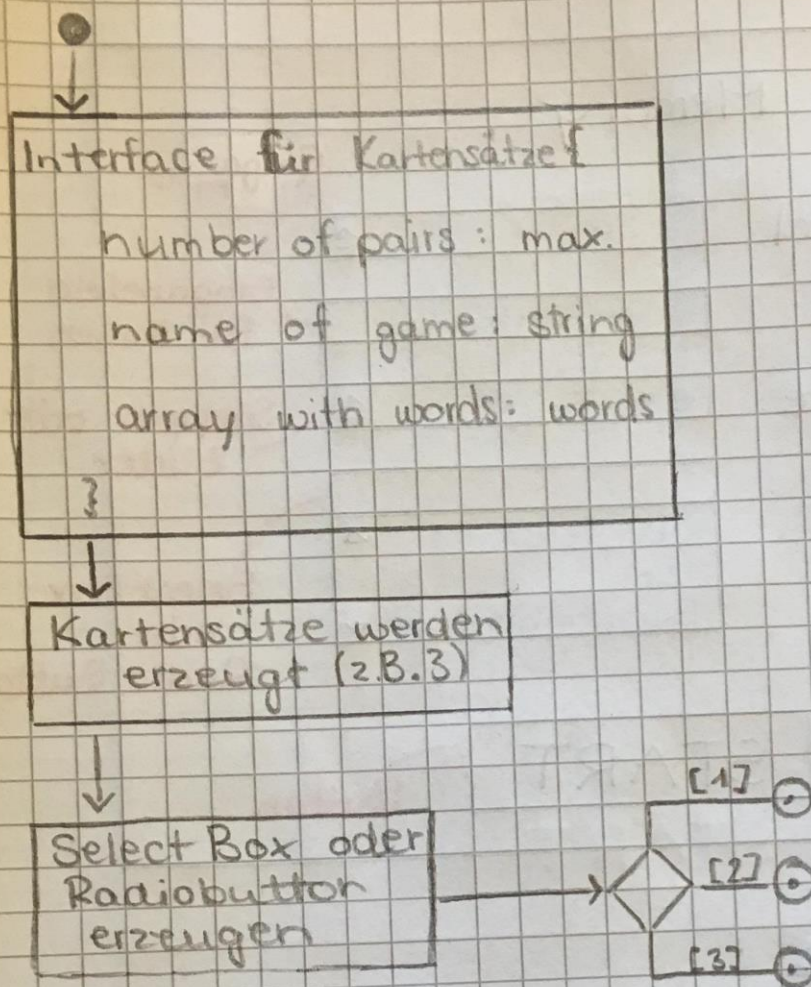 Interface für Kartensätze {
number of pairs : max.
name of game : string
array with words : words
}
Kartensätze werden
erzeugt (z.B. 3)
Select Box oder
Radiobutton
erzeugen
[1]
[2]
[3]